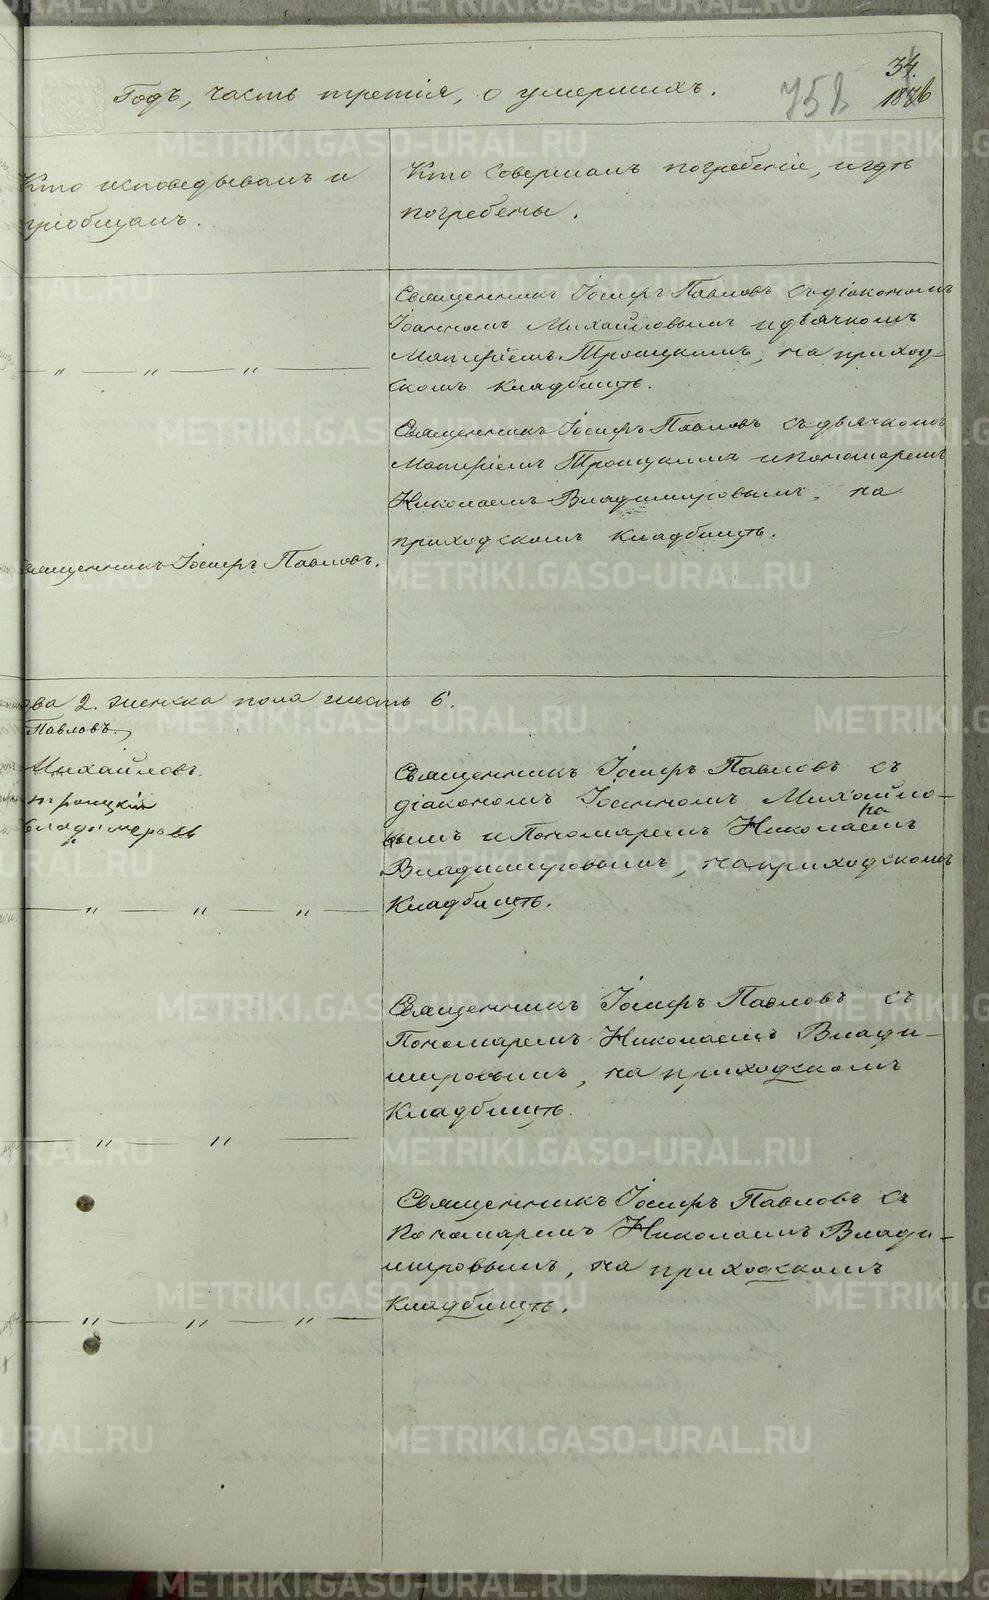 34.
Годъ, часть третія, о умершихъ.
758
1876
Кто исповѣдывалъ и
пріобщалъ.
Кто совершалъ погребеніе, и гдѣ
погребены.
Священникъ Іосифъ Павловъ съ діакономъ
Іоанномъ Михайловымъ и дьячкомъ
Матфіемъ Троицкимъ, на приход-
скомъ кладбищѣ.
— " — " — " —
Священникъ Іосифъ Павловъ съ дьячкомъ
Матфіемъ Троицкимъ и пономаремъ
Николаемъ Владимировымъ, на
приходскомъ кладбищѣ.
Священникъ Іосифъ Павловъ.
два 2. женска пола шесть 6.
Павловъ
Михайловъ
Троицкій
Владимеровъ
Священникъ Іосифъ Павловъ съ
діакономъ Іоанномъ Михайло-
вымъ и Пономаремъ Николаемъ
Владимировымъ, на приходскомъ
кладбищѣ.
— " — " — " —
Священникъ Іосифъ Павловъ съ
Пономаремъ Николаемъ Влади-
мировымъ, на приходскомъ
кладбищѣ.
— " — " —
Священникъ Іосифъ Павловъ съ
Пономаремъ Николаемъ Влади-
мировымъ, на приходскомъ
кладбищѣ.
— " — " — " —
METRIKI.GASO-URAL.RU